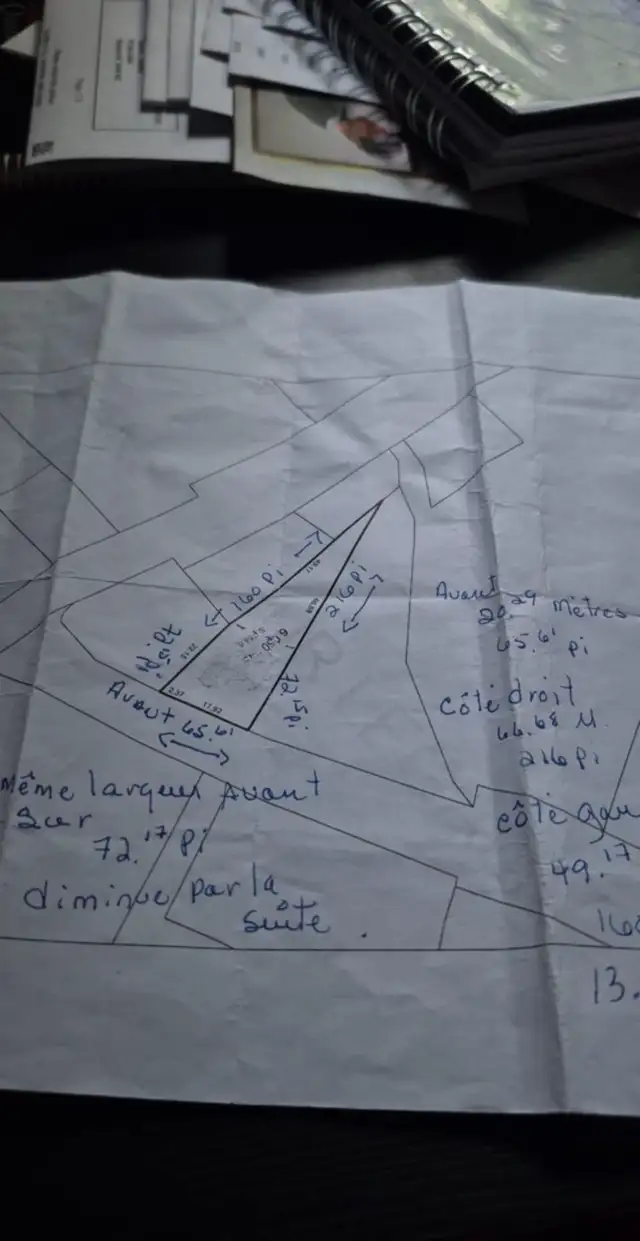 160 pi
216 pi
66.68
22.15
72 pi
72.15 pi
2.37
17.92
Avant 65.61
Avant
20.29 mètres
65.61 pi
côté droit
66.68 M.
216 pi
côté gau
49.17
160
13.
même largeur Avant
sur
72.17 pi
diminue par la
suite.